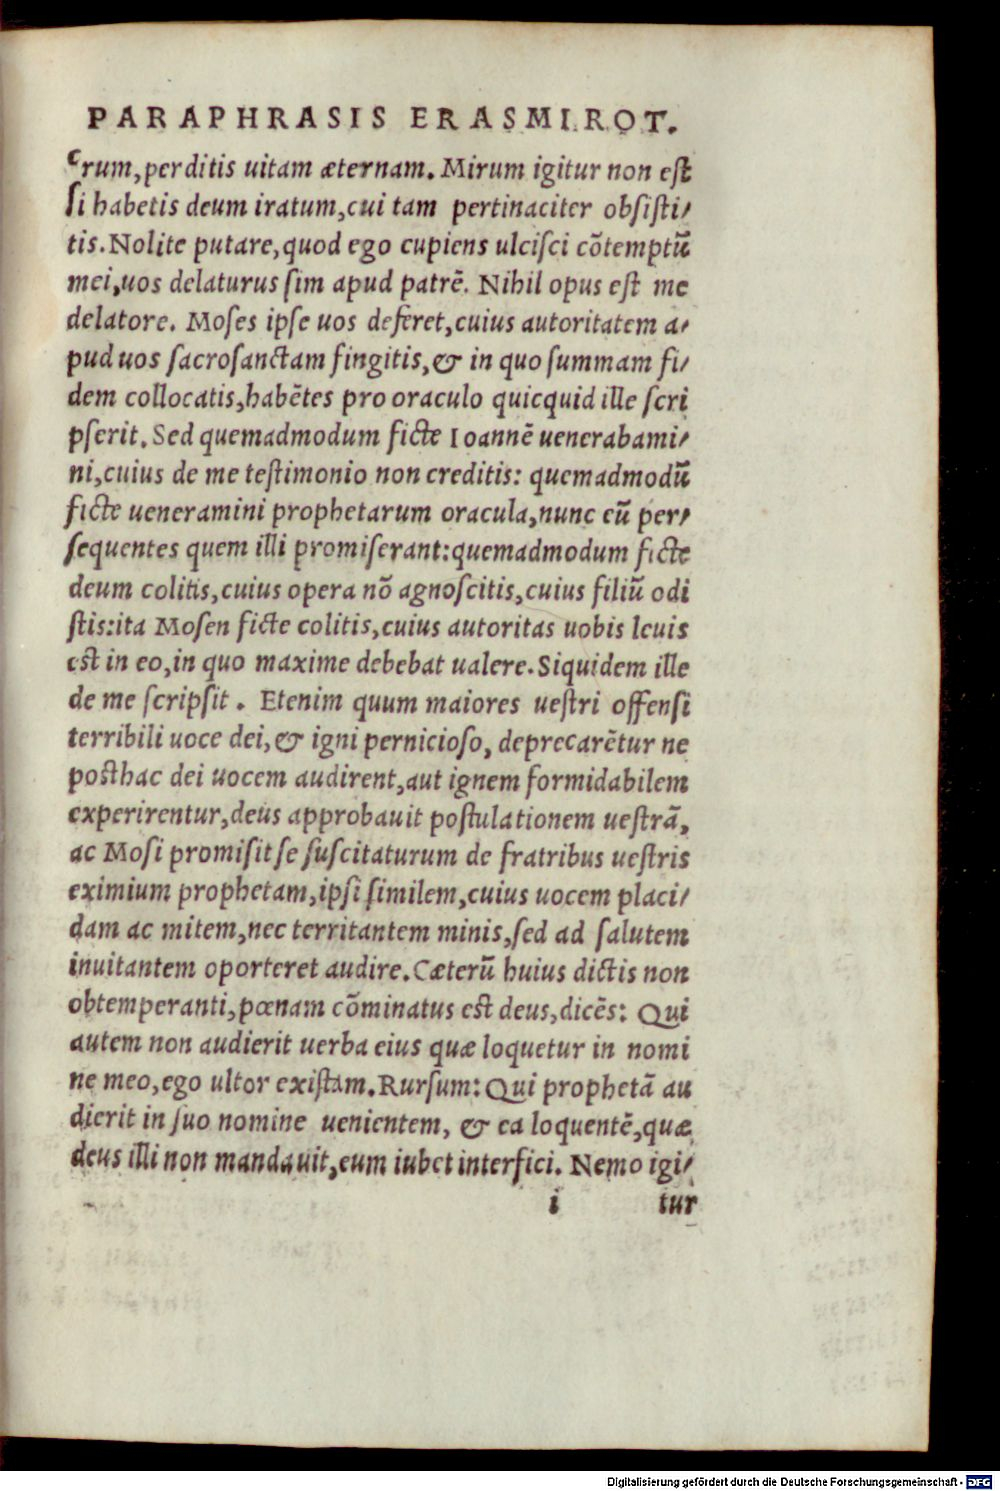 PARAPHRASIS ERASMI ROT.
crum,perditis uitam æternam. Mirum igitur non est
si habetis deum iratum,cui tam pertinaciter obsisti/
tis. Nolite putare,quod ego cupiens ulcisci cõtemptũ
mei,uos delaturus sim apud patrẽ. Nihil opus est me
delatore. Moses ipse uos deferet,cuius autoritatem a/
pud uos sacrosanctam fingitis,& in quo summam fi/
dem collocatis,habẽtes pro oraculo quicquid ille scri
pserit. Sed quemadmodum ficte Ioannẽ uenerabami/
ni,cuius de me testimonio non creditis: quemadmodũ
ficte ueneramini prophetarum oracula,nunc eũ per/
sequentes quem illi promiserant:quemadmodum ficte
deum colitis,cuius opera nõ agnoscitis,cuius filiũ odi
stis:ita Mosen ficte colitis,cuius autoritas uobis leuis
est in eo,in quo maxime debebat ualere. Siquidem ille
de me scripsit. Etenim quum maiores uestri offensi
terribili uoce dei,& igni pernicioso, deprecarẽtur ne
posthac dei uocem audirent,aut ignem formidabilem
experirentur,deus approbauit postulationem uestrã,
ac Mosi promisit se suscitaturum de fratribus uestris
eximium prophetam,ipsi similem,cuius uocem placi/
dam ac mitem,nec territantem minis,sed ad salutem
inuitantem oporteret audire. Cæterũ huius dictis non
obtemperanti,pœnam cõminatus est deus,dicẽs: Qui
autem non audierit uerba eius quæ loquetur in nomi
ne meo,ego ultor existam. Rursum: Qui prophetã au
dierit in suo nomine uenientem, & ea loquentẽ,quæ
deus illi non mandauit,eum iubet interfici. Nemo igi/
i tur
Digitalisierung gefördert durch die Deutsche Forschungsgemeinschaft - DFG